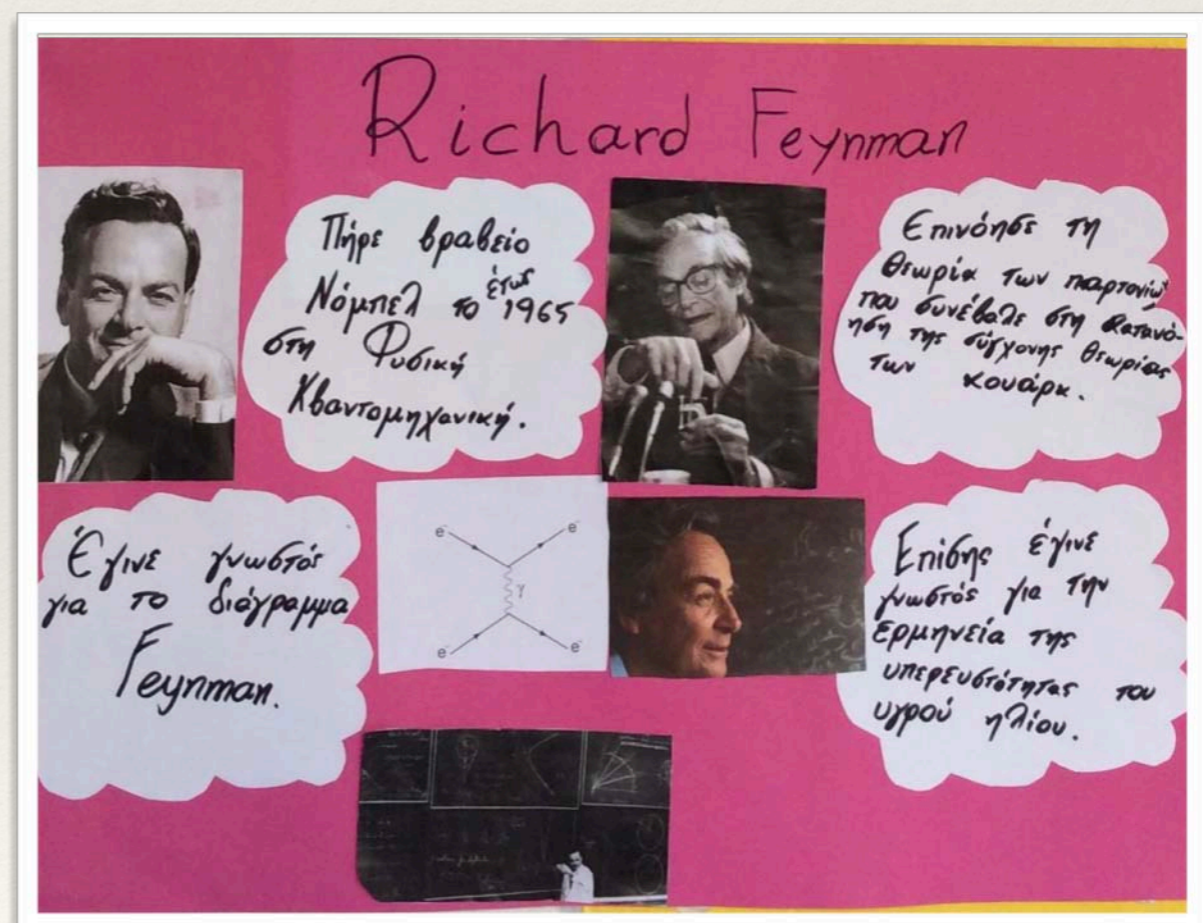 Richard Feynman
Πήρε βραβείο
Νόμπελ το έτος 1965
στη Φυσική
Κβαντομηχανική.
Επινόησε τη
θεωρία των παρτονίων
που συνέβαλε στη κατανό-
ηση της σύγχονης θεωρίας
των κουάρκ.
Έγινε γνωστός
για το διάγραμμα
Feynman.
e⁻ e⁻
γ
e⁻ e⁻
Επίσης έγινε
γνωστός για την
ερμηνεία της
υπερευστότητας του
υγρού ηλίου.